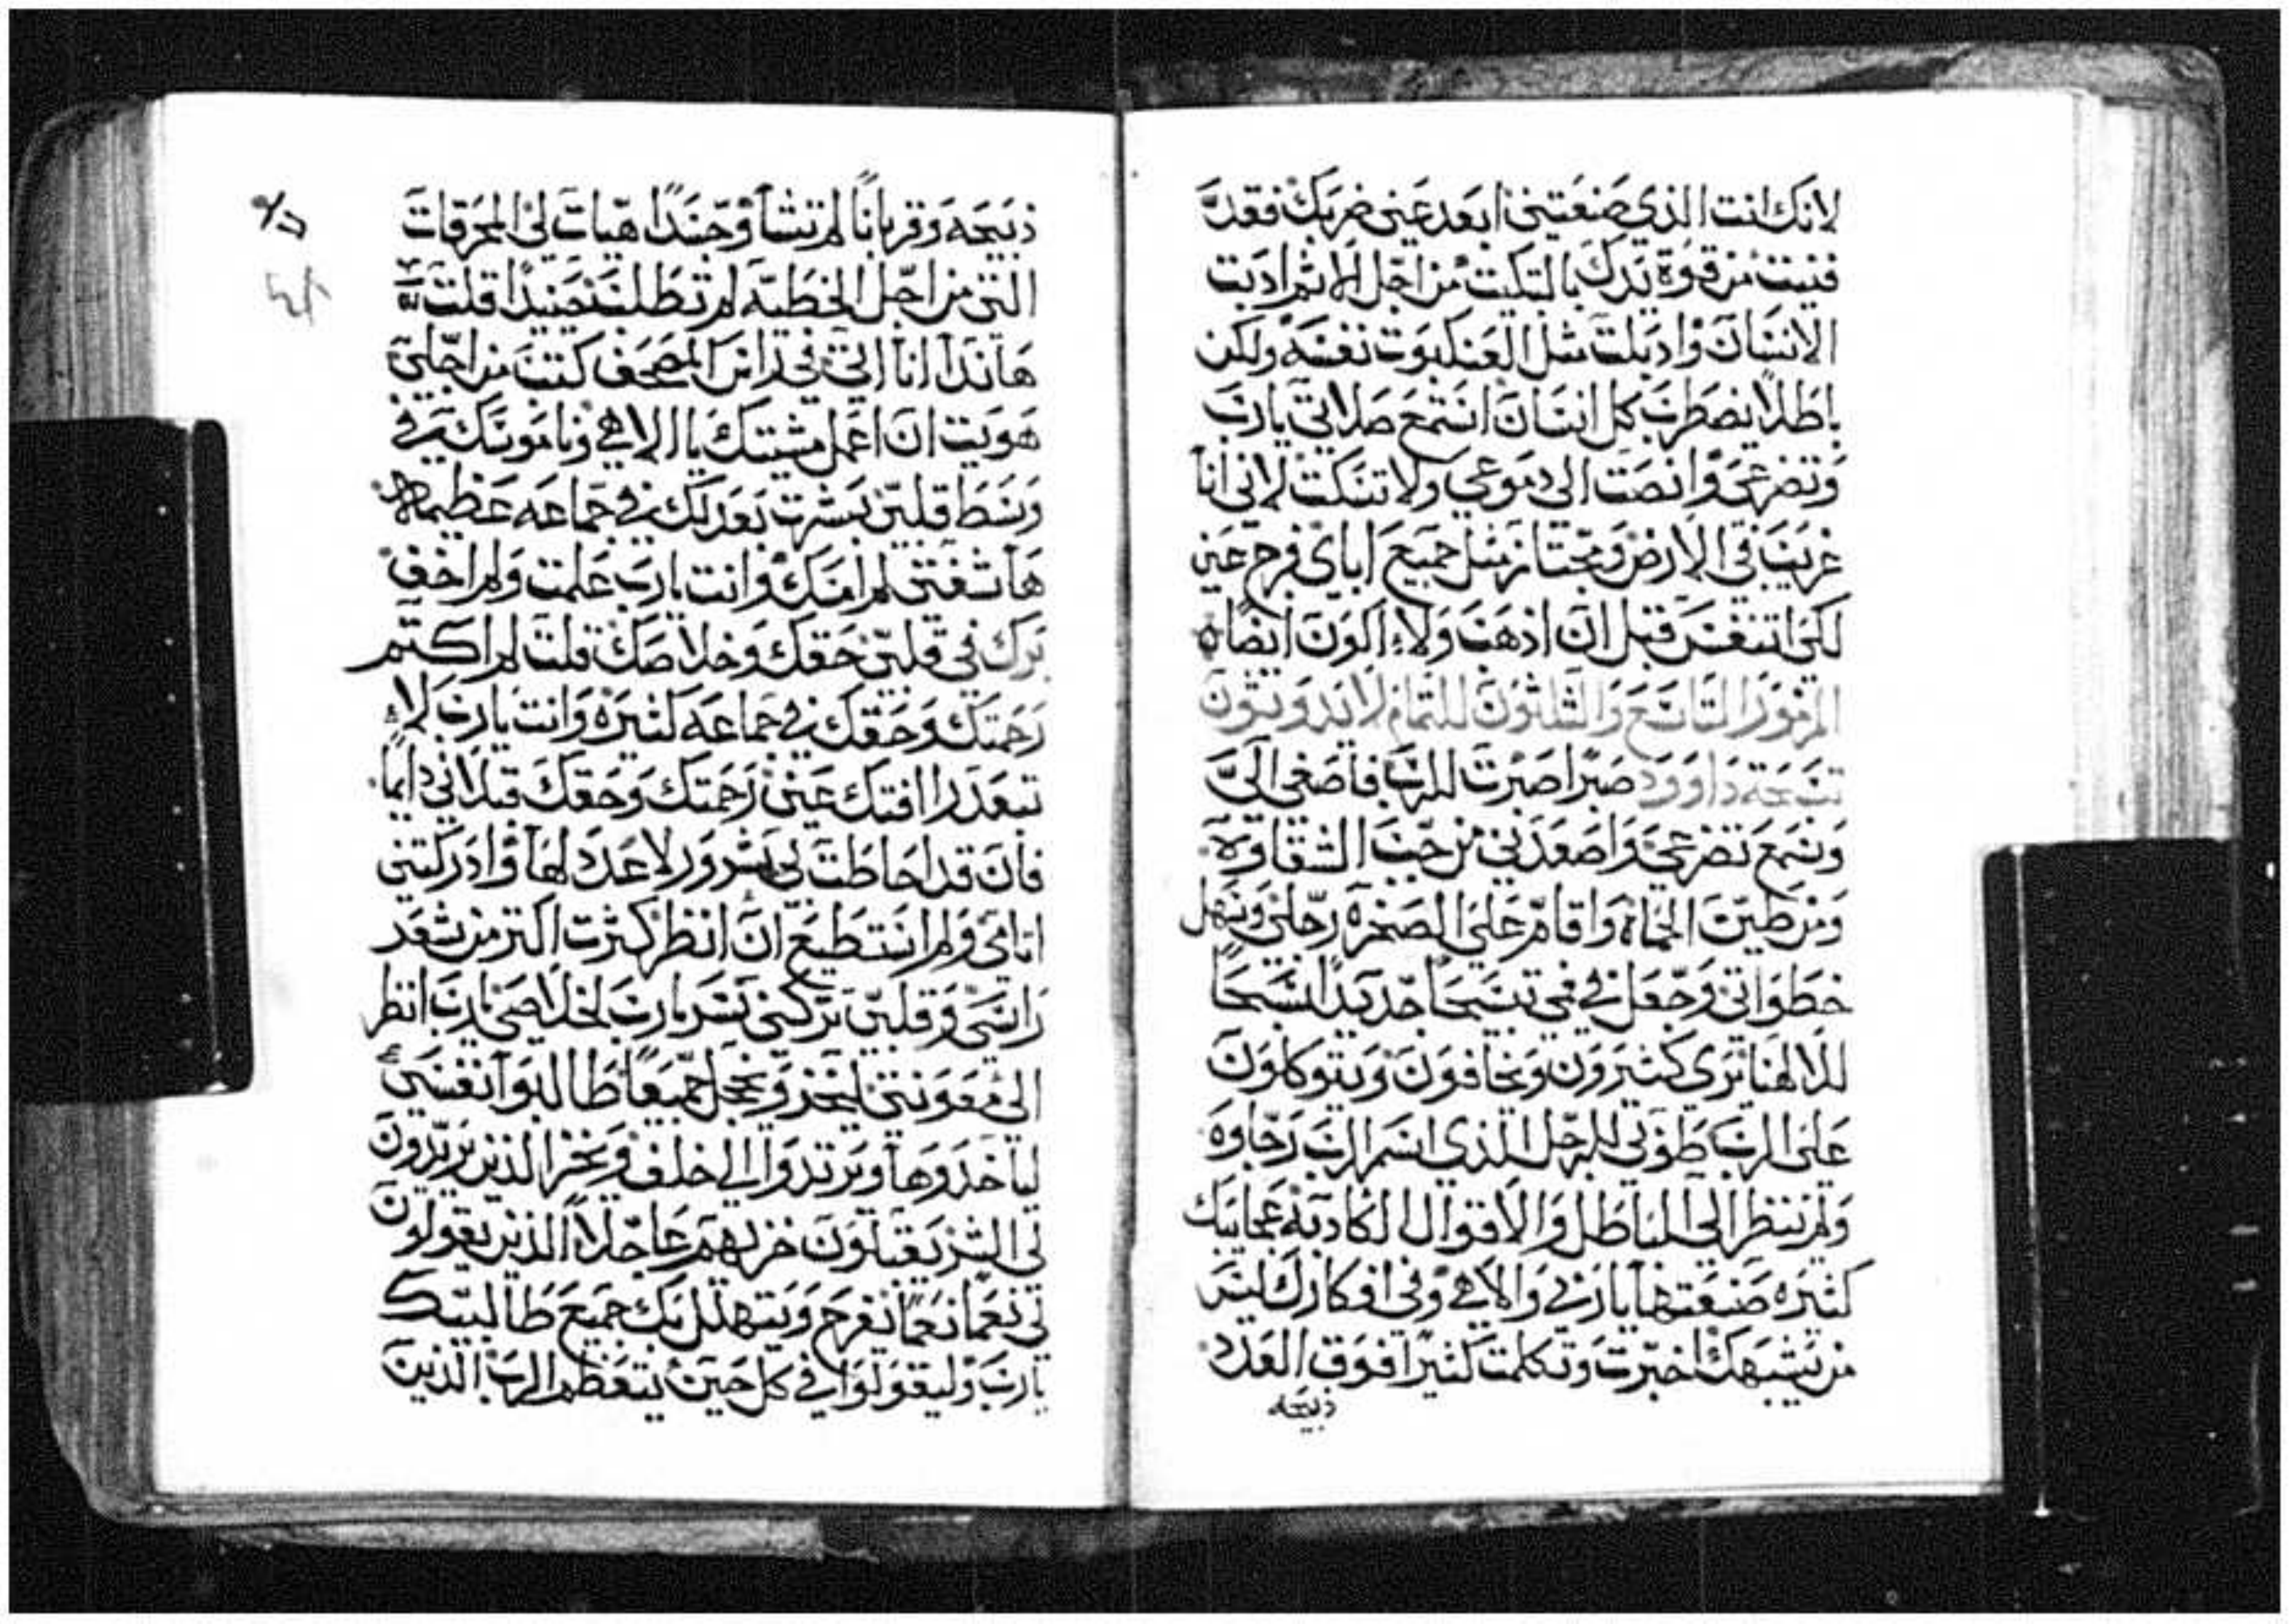 لانك انت الذي صنعتني ابعد عني ضربك فقد
فنيت من قوة يدك بالتبكيت من اجل الاثم ادبت
الانسان واذبلت مثل العنكبوت نفسه ولكن
باطلاً يضطرب كل انسان استمع صلاتي يارب
وتضرعي وانصت الى دموعي ولا تسكت لاني انا
غريب في الارض ومجتاز مثل جميع اباي فرج عني
لكي اتنفس قبل ان اذهب ولا اكون ايضاً
المزمور التاسع والثلثون للتمام لايدوثون
تسبحة داوود صبراً صبرت للرب فاصغى اليَّ
وسمع تضرعي واصعدني من جب الشقاوة
ومن طين الحماة واقام على الصخرة رجلي وسهل
خطواتي وجعل في فمي تسبيحاً جديداً سبحاً
للالهنا يرى كثيرون ويخافون ويتوكلون
على الرب طوبى للرجل الذي اسم الرب رجاوه
ولم ينظر الى الباطل والاقوال الكاذبة عجايبك
كثيره صنعتها يا ربي والاهي وفي افكارك ليس
من يشبهك اخبرت وتكلمت كثيراً فوق العدد
ذبيحه
ذبيحه وقرباناً لم تشا وجسداً هيات لي المحرقات
التي من اجل الخطيه لم تطلب حينيذاً قلت
هانذا انا اتي في راس المصحف كتب من اجلي
هويت ان اعمل مشيتك يا الاهي وناموسك في
وسط قلبي بشرت بعدلك في جماعه عظيمه
ها شفتي لم امنك وانت يارب علمت ولم اخف
برك في قلبي حقك وخلاصك قلت لم اكتم
رحمتك وحقك في جماعه كثيره وانت يارب لا
تبعد رافتك عني رحمتك وحقك قبلاني دايماً
فان قد احاطت بي شرور لا عدد لها وادركتني
اتامي ولم استطيع ان انظر كثرت اكتر من شعر
راسي وقلبي تركني تسر يارب لخلاصي يارب انظر
الى معونتي ليخز ويخجل جميعاً طالبوا نفسي
لياخذوها ويرتدوا الى خلف ويخزا الذين يريدون
لي الشر يقبلون خزيهم عاجلاً الذين يقولون
لي نعماً نعماً يفرح ويتهلل بك جميع طالبيك
يارب وليقولوا في كل حين يتعظم الرب الذين